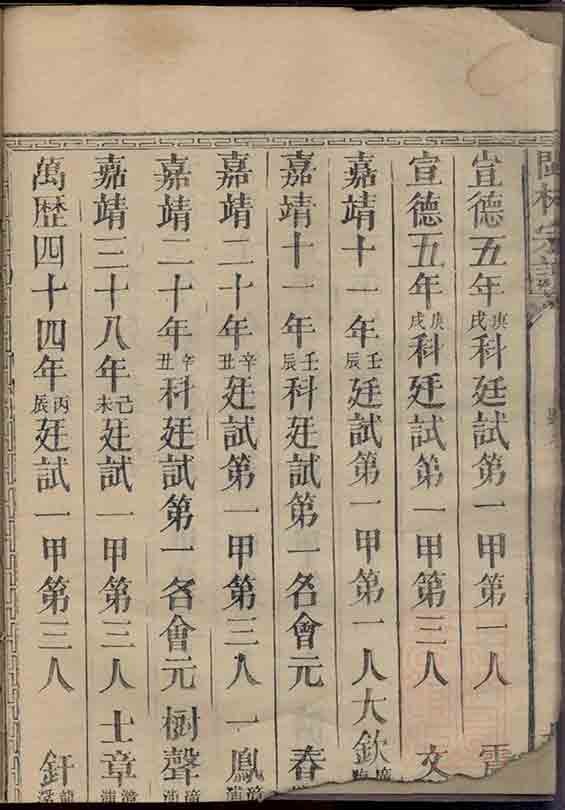 宣德五年庚戌科廷試第一甲第一人
宣德五年庚戌科廷試第一甲第三人 文
嘉靖十一年壬辰廷試第一甲第一人大欽
嘉靖十一年壬辰科廷試第一名會元 春
嘉靖二十年辛丑廷試第一甲第三人一鳳
嘉靖二十年辛丑科廷試第一名會元樹聲
嘉靖三十八年己未廷試一甲第三人士章
萬歷四十四年丙辰廷試一甲第三人 釬